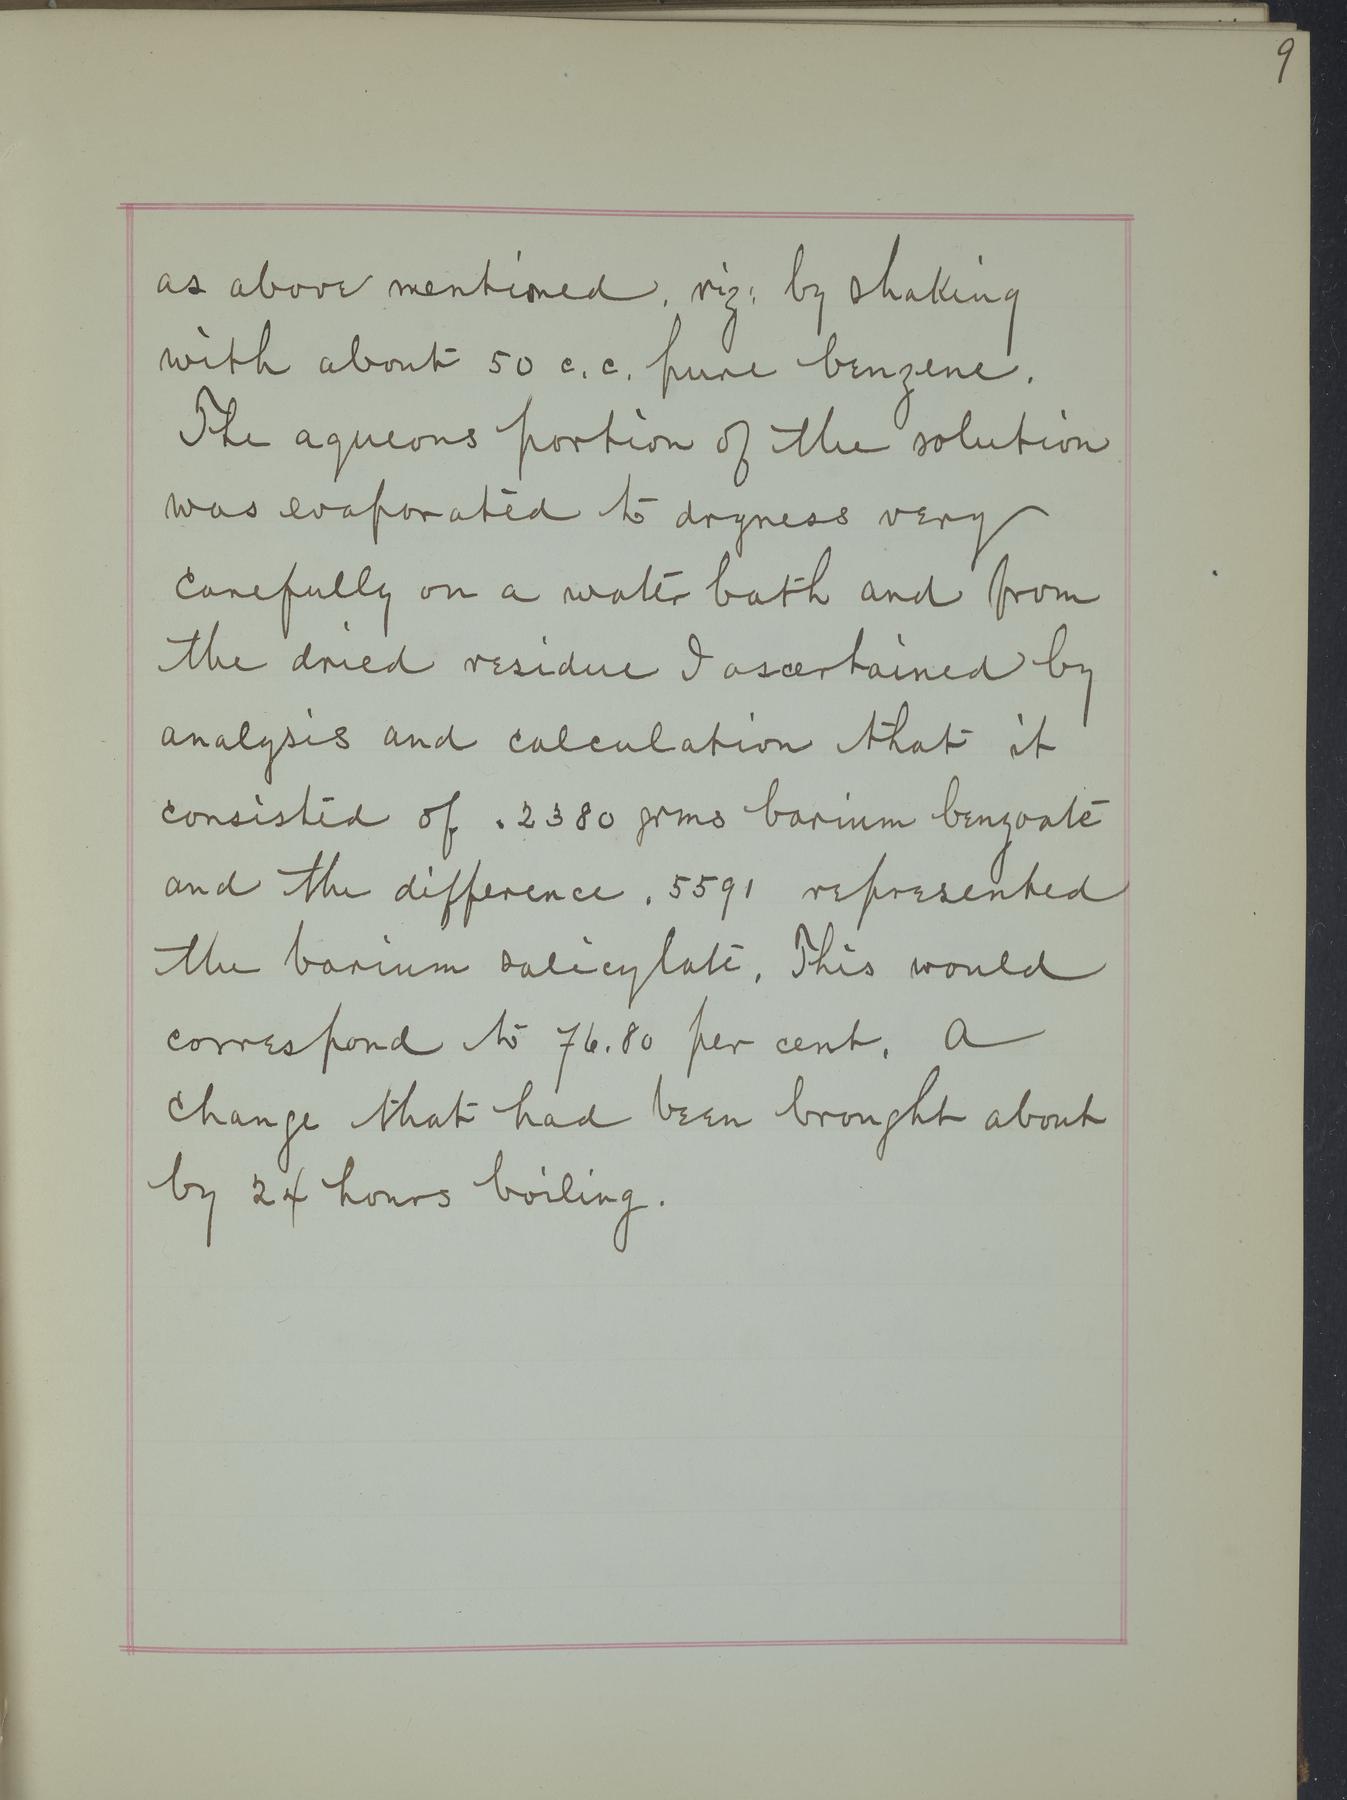 9
as above mentioned, viz: by shaking
with about 50 c.c. pure benzene.
The aqueous portion of the solution
was evaporated to dryness very
carefully on a water bath and from
the dried residue I ascertained by
analysis and calculation that it
consisted of .2380 grms barium benzoate
and the difference .5591 represented
the barium salicylate. This would
correspond to 76.80 per cent. A
change that had been brought about
by 24 hours boiling.